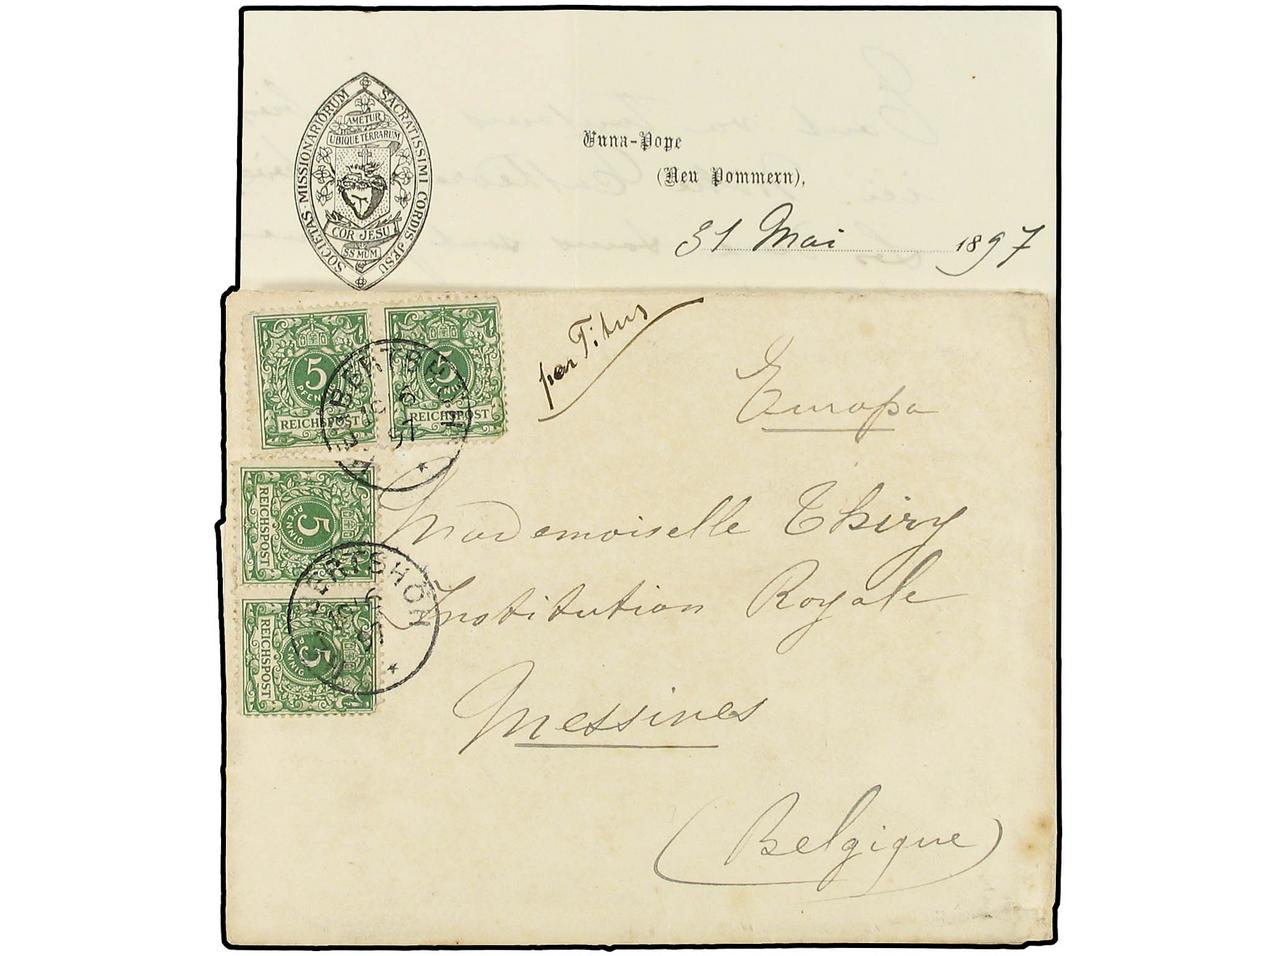 SOCIETAS · MISSIONARIORUM SACRATISSIMI CORDIS JESU
AMETUR
UBIQUE TERRARUM
COR JESU
SS MUM
Vuna-Pope
(Neu Pommern),
31 Mai 1897
5
PFENNIG
REICHSPOST
5
PFENNIG
REICHSPOST
HERBERTSHÖH
par Titus
Europa
5
PFENNIG
REICHSPOST
5
PFENNIG
REICHSPOST
BERTSHÖH
Mademoiselle Thiry
Institution Royale
Messines
(Belgique)